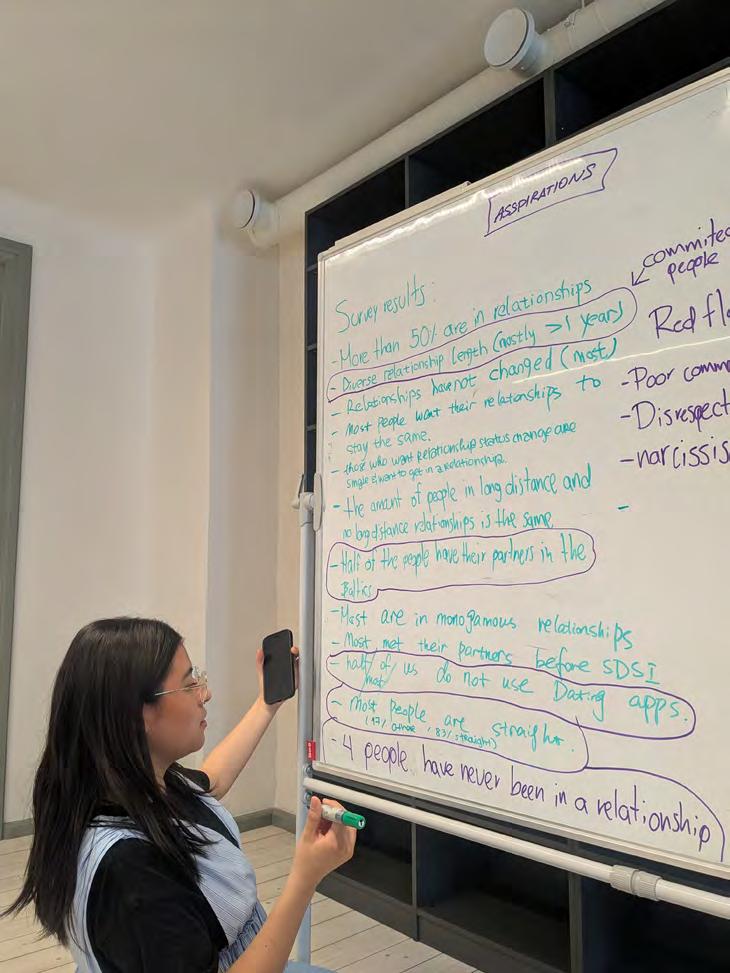 ASSPIRATIONS
Survey results:
- More than 50% are in relationships
- Diverse relationship length (mostly >1 year)
- Relationships have not changed (most)
- Most People want their relationships to
stay the same.
- those who want relationship status change are
single & want to get in a relationship.
- the amount of people in long distance and
no long distance relationships is the same
- Half of the people have their partners in the
Baltics
- Most are in monogamous relationships
- Most met their partners before SDSI
- half/ of/ us do not use Dating apps.
most
- most People are straight.
(17% , 83% straight)
- 4 people have never been in a relationship
commited
people
Red fl
- Poor comm
- Disrespect
- narcissis
-